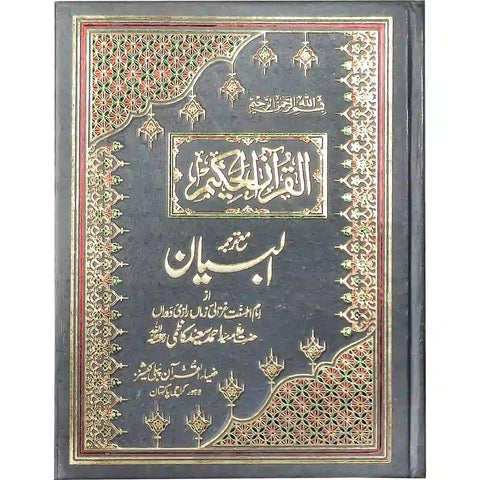 بسم اللہ الرحمن الرحیم
القرآن الحکیم
مع ترجمہ
البیان
از
امام اہلسنت غزالیٔ زماں رازیٔ دوراں
حضرت علامہ سید احمد سعید کاظمی رحمۃ اللہ علیہ
ضیاء القرآن پبلی کیشنز
لاہور کراچی پاکستان